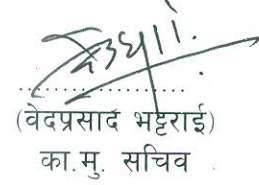 (वेदप्रसाद भट्टराई)
का.मु. सचिव